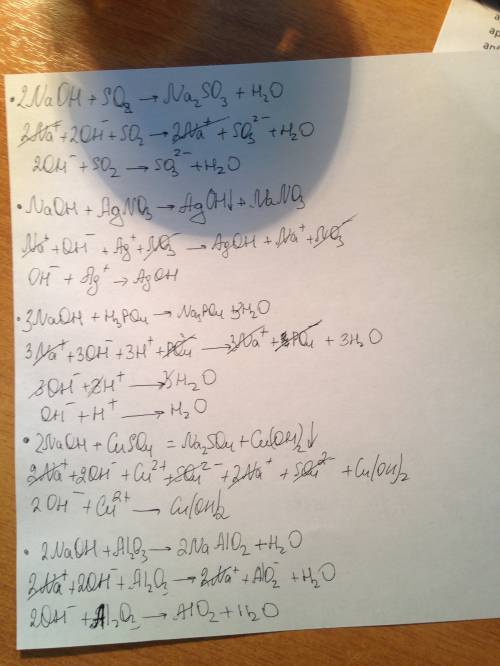 • 2NaOH + SO₂ → Na₂SO₃ + H₂O
2Na⁺ + 2OH⁻ + SO₂ → 2Na⁺ + SO₃²⁻ + H₂O
2OH⁻ + SO₂ → SO₃²⁻ + H₂O
• NaOH + AgNO₃ → AgOH↓ + NaNO₃
Na⁺ + OH⁻ + Ag⁺ + NO₃⁻ → AgOH + Na⁺ + NO₃⁻
OH⁻ + Ag⁺ → AgOH
• 3NaOH + H₃PO₄ → Na₃PO₄ + 3H₂O
3Na⁺ + 3OH⁻ + 3H⁺ + PO₄⁻ → 3Na⁺ + PO₄⁻ + 3H₂O
3OH⁻ + 3H⁺ → 3H₂O
OH⁻ + H⁺ → H₂O
• 2NaOH + CuSO₄ = Na₂SO₄ + Cu(OH)₂↓
2Na⁺ + 2OH⁻ + Cu²⁺ + SO₄²⁻ + 2Na⁺ + SO₄²⁻ + Cu(OH)₂
2OH⁻ + Cu²⁺ → Cu(OH)₂
• 2NaOH + Al₂O₃ → 2NaAlO₂ + H₂O
2Na⁺ + 2OH⁻ + Al₂O₃ → 2Na⁺ + AlO₂⁻ + H₂O
2OH⁻ + Al₂O₃ → AlO₂ + H₂O